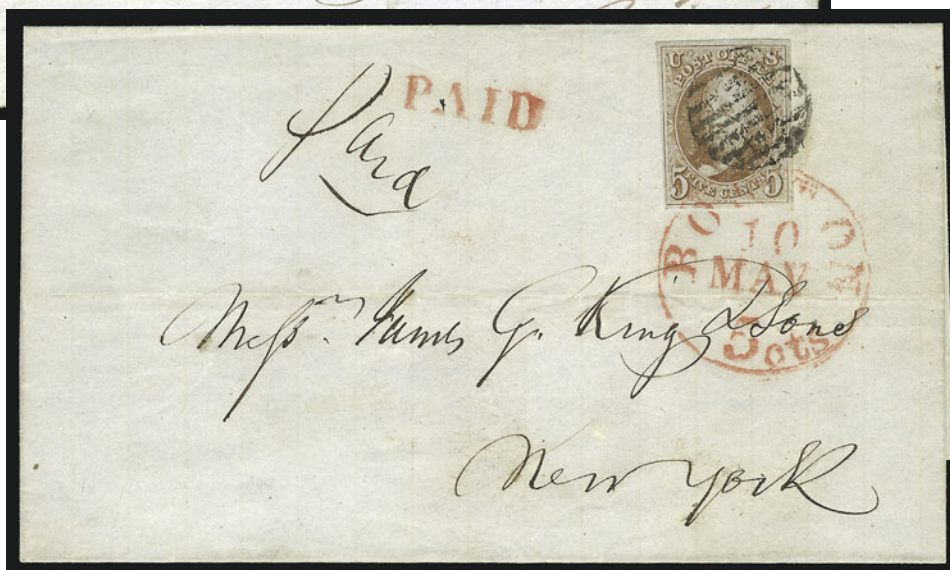 PAID
Paid
U S
POST OFFICE
5 FIVE CENTS 5
BOSTON
10
MAY
5 cts
Messrs. James G. King & Sons
New York